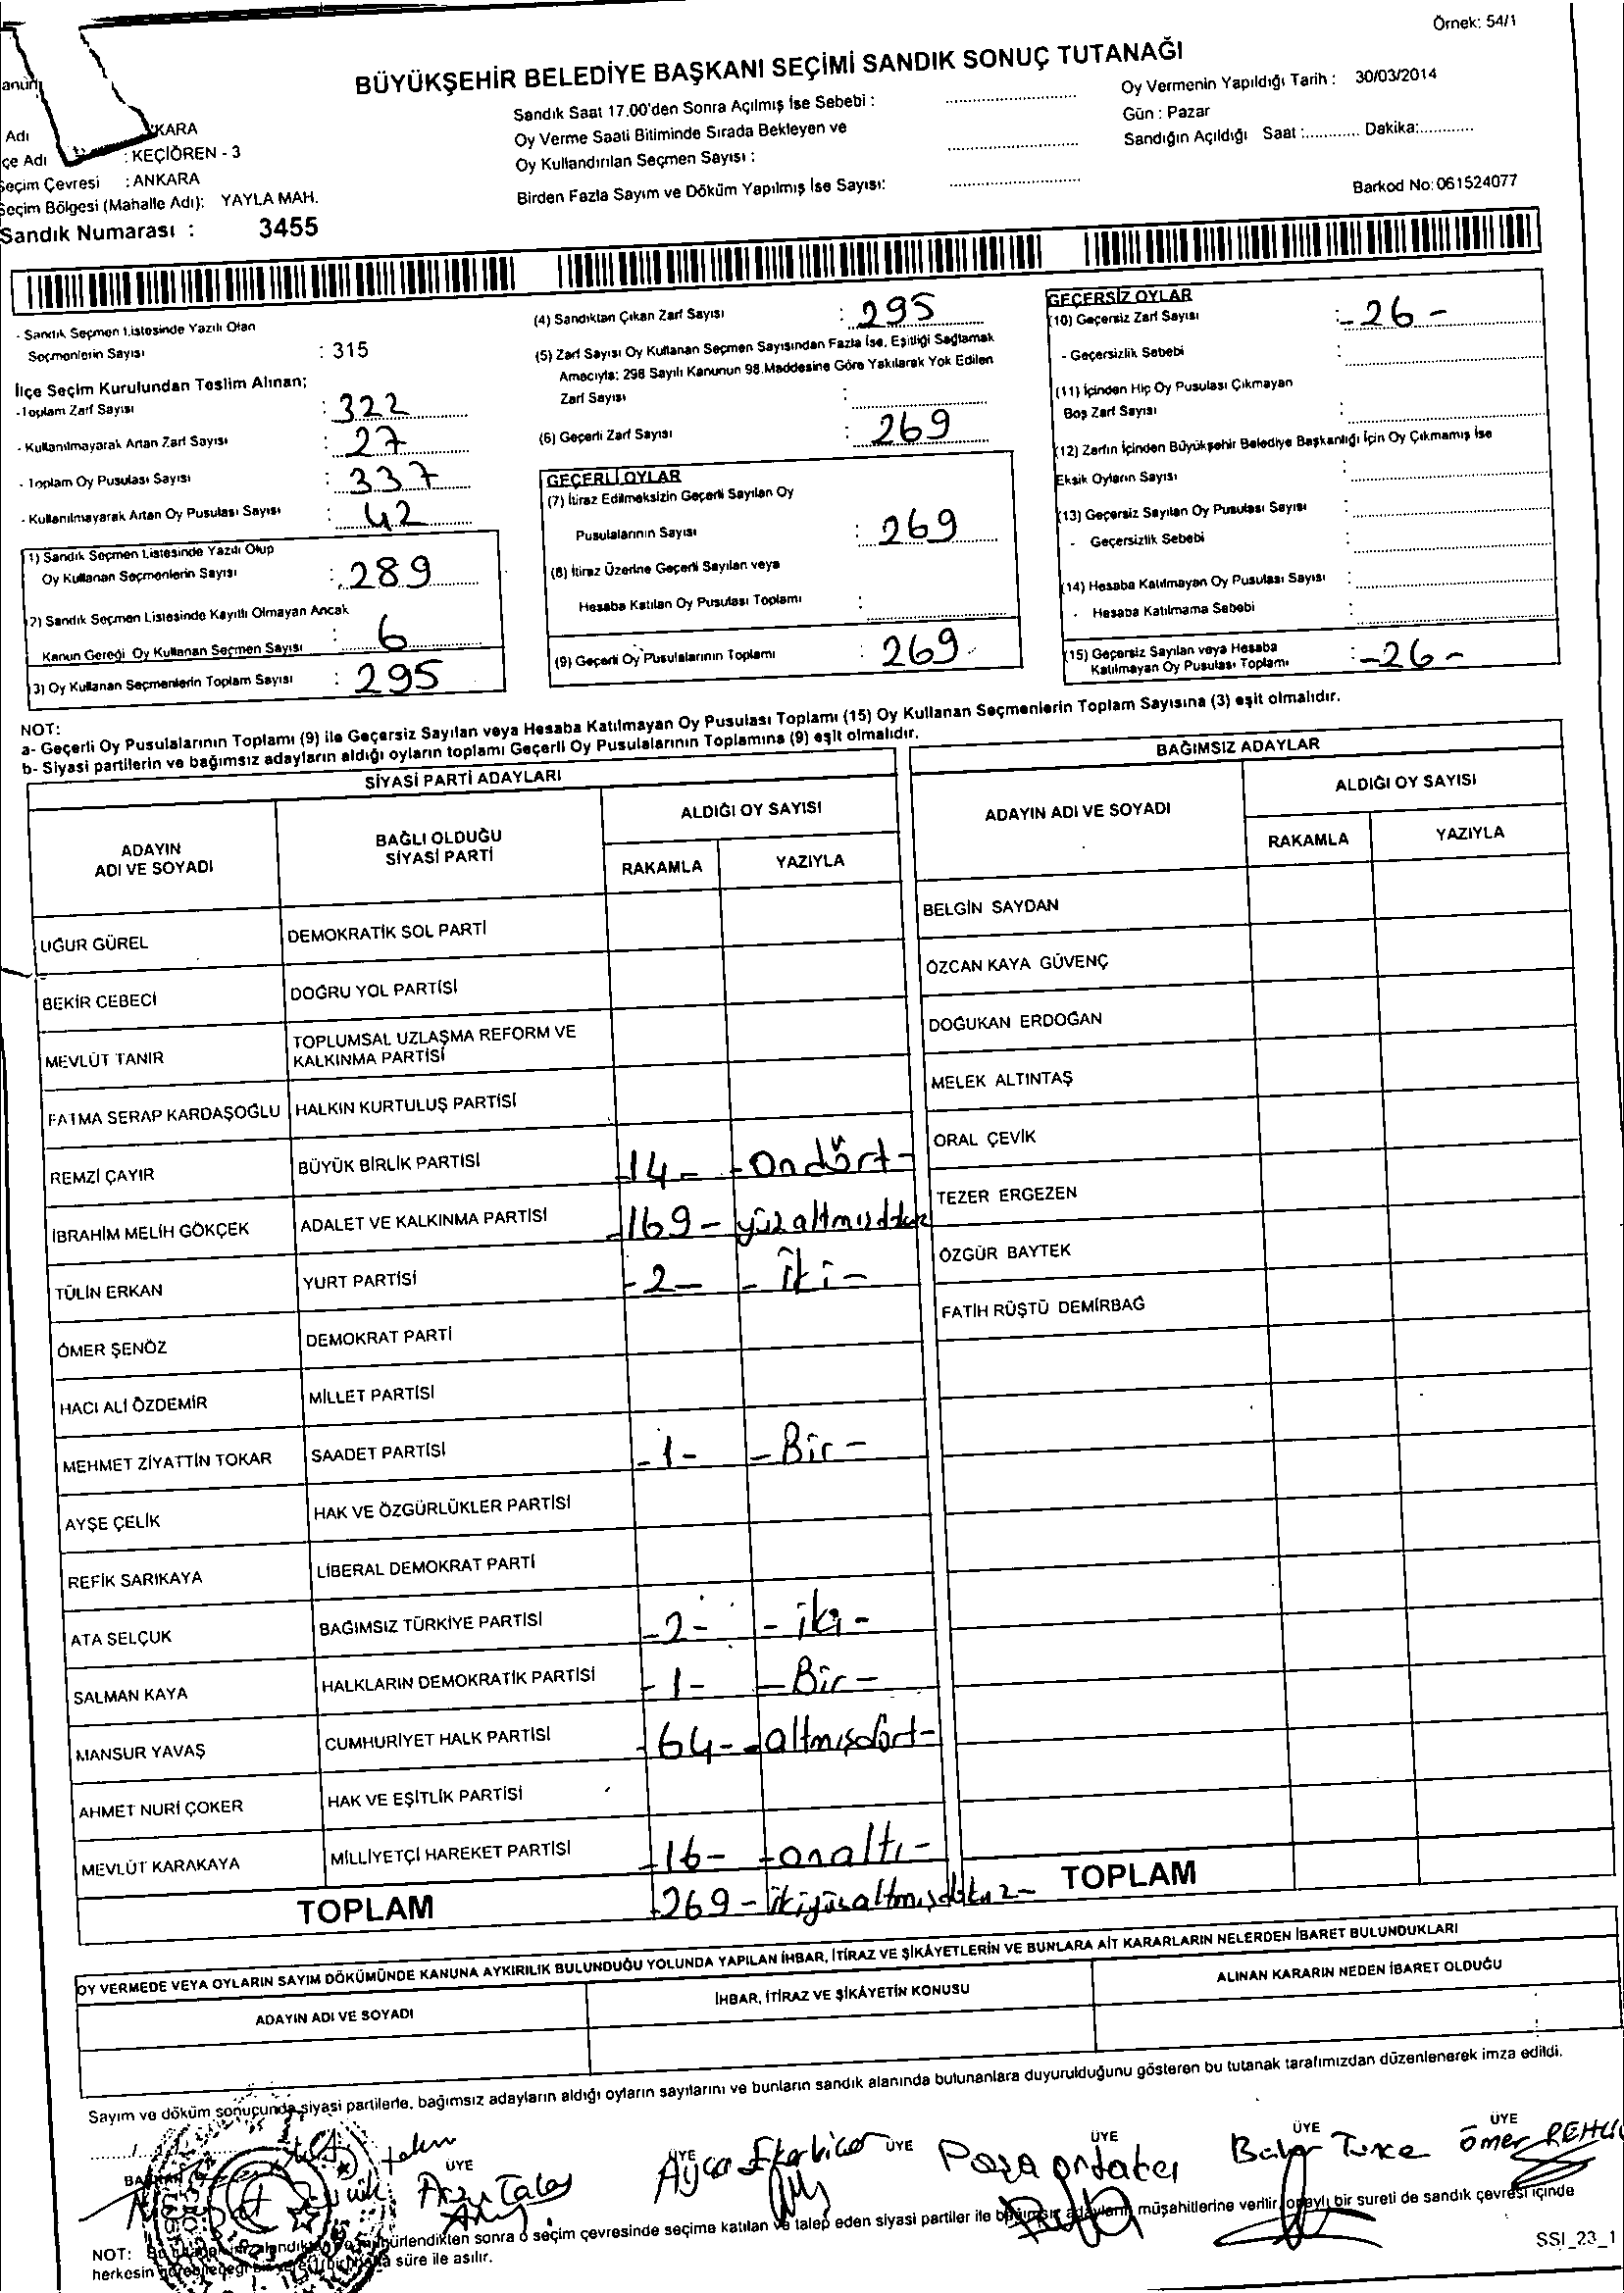 Örnek: 54/1
BÜYÜKŞEHİR BELEDİYE BAŞKANI SEÇİMİ SANDIK SONUÇ TUTANAĞI
Adı KARA
çe Adı : KEÇİÖREN - 3
Seçim Çevresi : ANKARA
Seçim Bölgesi (Mahalle Adı): YAYLA MAH.
Sandık Numarası : 3455
Sandık Saat 17.00'den Sonra Açılmış İse Sebebi :
Oy Verme Saati Bitiminde Sırada Bekleyen ve
Oy Kullandırılan Seçmen Sayısı :
Birden Fazla Sayım ve Döküm Yapılmış İse Sayısı:
Oy Vermenin Yapıldığı Tarih : 30/03/2014
Gün : Pazar
Sandığın Açıldığı Saat :............ Dakika:............
Barkod No: 061524077
- Sandık Seçmen Listesinde Yazılı Olan
Seçmenlerin Sayısı : 315
İlçe Seçim Kurulundan Teslim Alınan;
- Toplam Zarf Sayısı : 322
- Kullanılmayarak Artan Zarf Sayısı : 27
- Toplam Oy Pusulası Sayısı : 337
- Kullanılmayarak Artan Oy Pusulası Sayısı : 42
1) Sandık Seçmen Listesinde Yazılı Olup
Oy Kullanan Seçmenlerin Sayısı : 289
2) Sandık Seçmen Listesinde Kayıtlı Olmayan Ancak
Kanun Gereği Oy Kullanan Seçmen Sayısı : 6
3) Oy Kullanan Seçmenlerin Toplam Sayısı : 295
(4) Sandıktan Çıkan Zarf Sayısı : 295
(5) Zarf Sayısı Oy Kullanan Seçmen Sayısından Fazla İse, Eşitliği Sağlamak
Amacıyla; 298 Sayılı Kanunun 98.Maddesine Göre Yakılarak Yok Edilen
Zarf Sayısı :
(6) Geçerli Zarf Sayısı : 269
GEÇERLİ OYLAR
(7) İtiraz Edilmeksizin Geçerli Sayılan Oy
Pusulalarının Sayısı : 269
(8) İtiraz Üzerine Geçerli Sayılan veya
Hesaba Katılan Oy Pusulası Toplamı :
(9) Geçerli Oy Pusulalarının Toplamı : 269
GEÇERSİZ OYLAR
(10) Geçersiz Zarf Sayısı : -26-
- Geçersizlik Sebebi :
(11) İçinden Hiç Oy Pusulası Çıkmayan
Boş Zarf Sayısı :
(12) Zarfın İçinden Büyükşehir Belediye Başkanlığı İçin Oy Çıkmamış İse
Eksik Oyların Sayısı :
(13) Geçersiz Sayılan Oy Pusulası Sayısı :
- Geçersizlik Sebebi :
(14) Hesaba Katılmayan Oy Pusulası Sayısı :
- Hesaba Katılmama Sebebi :
(15) Geçersiz Sayılan veya Hesaba
Katılmayan Oy Pusulası Toplamı : -26-
NOT:
a- Geçerli Oy Pusulalarının Toplamı (9) ile Geçersiz Sayılan veya Hesaba Katılmayan Oy Pusulası Toplamı (15) Oy Kullanan Seçmenlerin Toplam Sayısına (3) eşit olmalıdır.
b- Siyasi partilerin ve bağımsız adayların aldığı oyların toplamı Geçerli Oy Pusulalarının Toplamına (9) eşit olmalıdır.
SİYASİ PARTİ ADAYLARI
ADAYIN ADI VE SOYADI
BAĞLI OLDUĞU SİYASİ PARTİ
ALDIĞI OY SAYISI
RAKAMLA YAZIYLA
UĞUR GÜREL DEMOKRATİK SOL PARTİ
BEKİR CEBECİ DOĞRU YOL PARTİSİ
MEVLÜT TANIR TOPLUMSAL UZLAŞMA REFORM VE KALKINMA PARTİSİ
FATMA SERAP KARDAŞOĞLU HALKIN KURTULUŞ PARTİSİ
REMZİ ÇAYIR BÜYÜK BİRLİK PARTİSİ -14- -Ondört-
İBRAHİM MELİH GÖKÇEK ADALET VE KALKINMA PARTİSİ -169-
TÜLİN ERKAN YURT PARTİSİ -2- -İki-
ÖMER ŞENÖZ DEMOKRAT PARTİ
HACI ALİ ÖZDEMİR MİLLET PARTİSİ
MEHMET ZİYATTİN TOKAR SAADET PARTİSİ -1- -Bir-
AYŞE ÇELİK HAK VE ÖZGÜRLÜKLER PARTİSİ
REFİK SARIKAYA LİBERAL DEMOKRAT PARTİ
ATA SELÇUK BAĞIMSIZ TÜRKİYE PARTİSİ -2- -iki-
SALMAN KAYA HALKLARIN DEMOKRATİK PARTİSİ -1- -Bir-
MANSUR YAVAŞ CUMHURİYET HALK PARTİSİ -64- -altmışdört-
AHMET NURİ ÇOKER HAK VE EŞİTLİK PARTİSİ
MEVLÜT KARAKAYA MİLLİYETÇİ HAREKET PARTİSİ -16- -onaltı-
TOPLAM -269- ikiyüzaltmışdokuz-
BAĞIMSIZ ADAYLAR
ADAYIN ADI VE SOYADI
ALDIĞI OY SAYISI
RAKAMLA YAZIYLA
BELGİN SAYDAN
ÖZCAN KAYA GÜVENÇ
DOĞUKAN ERDOĞAN
MELEK ALTINTAŞ
ORAL ÇEVİK
TEZER ERGEZEN
ÖZGÜR BAYTEK
FATİH RÜŞTÜ DEMİRBAĞ
TOPLAM
OY VERMEDE VEYA OYLARIN SAYIM DÖKÜMÜNDE KANUNA AYKIRILIK BULUNDUĞU YOLUNDA YAPILAN İHBAR, İTİRAZ VE ŞİKÂYETLERİN VE BUNLARA AİT KARARLARIN NELERDEN İBARET BULUNDUKLARI
ADAYIN ADI VE SOYADI
İHBAR, İTİRAZ VE ŞİKÂYETİN KONUSU
ALINAN KARARIN NEDEN İBARET OLDUĞU
Sayım ve döküm sonucunda siyasi partilerle, bağımsız adayların aldığı oyların sayılarını ve bunların sandık alanında bulunanlara duyurulduğunu gösteren bu tutanak tarafımızdan düzenlenerek imza edildi.
BAŞKAN ÜYE ÜYE ÜYE ÜYE ÜYE ÜYE
NOT: sonra o seçim çevresinde seçime katılan ve talep eden siyasi partiler ile bağımsız adayların müşahitlerine verilir, onaylı bir sureti de sandık çevresi içinde
herkesin süre ile asılır.
SSI_23_1